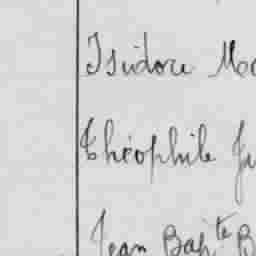 Isidore Mo
Théophile Ju
Jean Bapte B